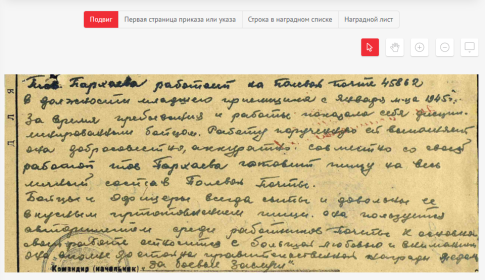 Подвиг Первая страница приказа или указа Строка в наградном списке Наградной лист
ДЛЯ
Тов. Пархаева работает на Полевой Почте 45862
в должности младшего приемщика с января м-ца 1945г.
За время пребывания и работы показала себя дисцип-
линированным бойцом. Работу порученную ей выполняет
она добросовестно, аккуратно. совместно со своей
работой тов Пархаева готовит пищу на весь
личный состав Полевой Почты.
Бойцы и Офицеры всегда сыты и довольны ее
вкусным приготовлением пищи. она пользуется
авторитетом среди работников почты. К основной
своей работе относится с большой любовью и вниманием
она вполне достойна правительственной награды медали
Командир (начальник) "За боевые Заслуги"